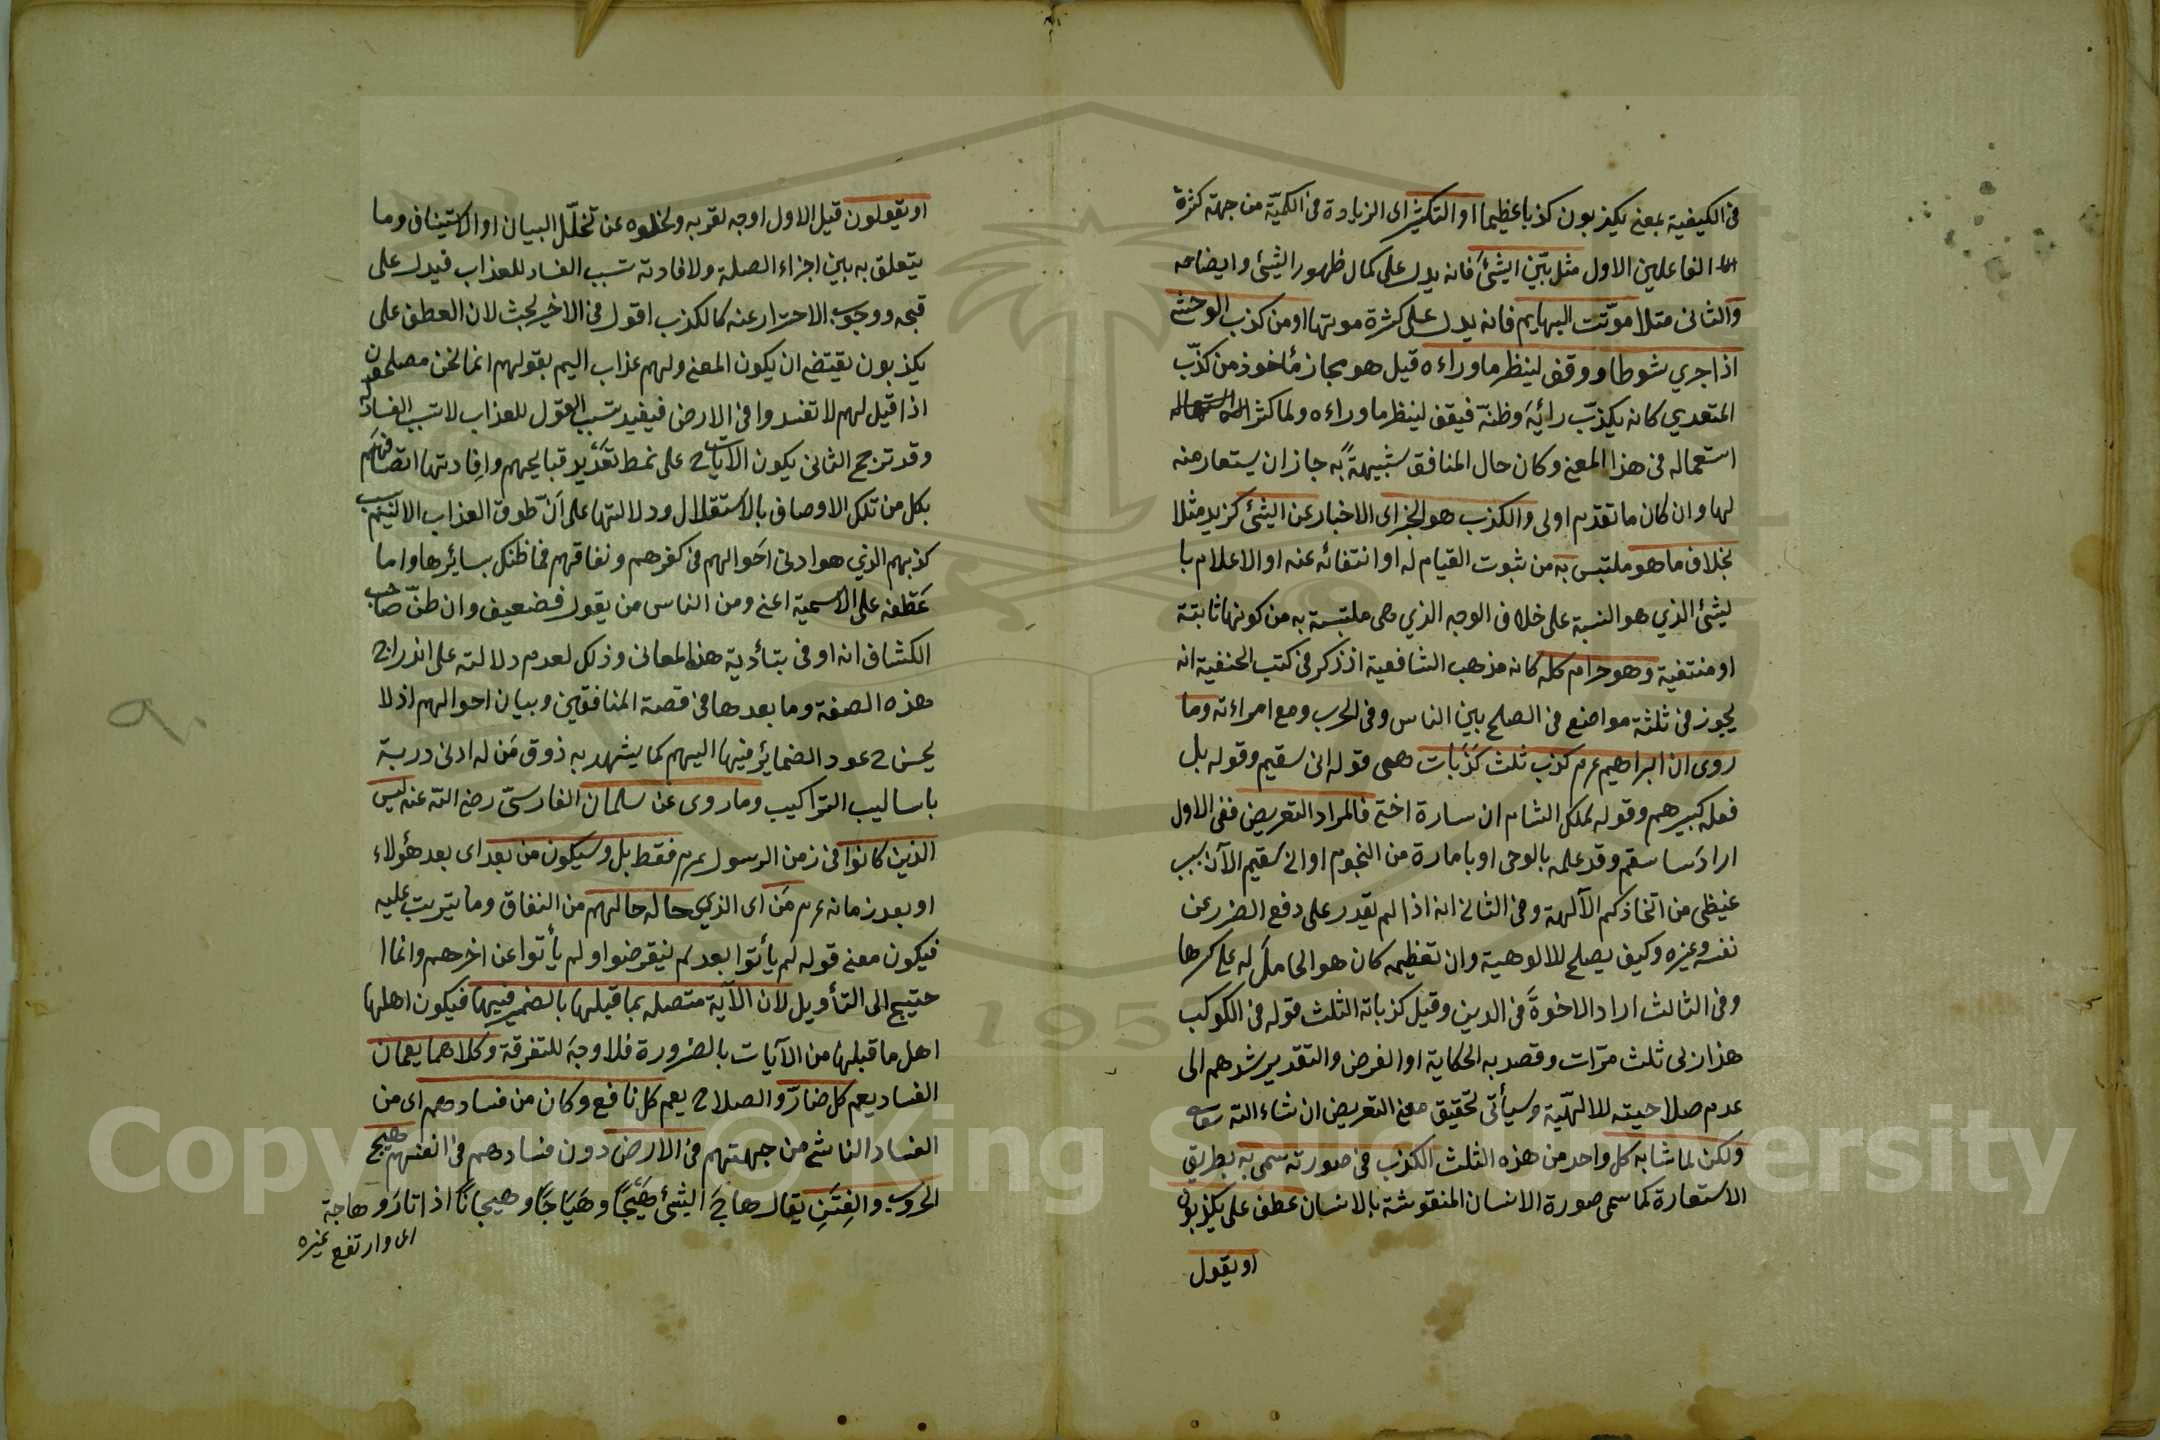 في الكيفية بمعنى يكذبون كذبا عظيما او التكثير اى الزيادة في الكمية من جهة كثرة
الفاعلين الاول مثل بيّن الشئ فانه يدل على كمال ظهور الشئ وايضاحه
والثاني مثلا موّتت البهايم فانه يدل على كثرة موتها او من كذب الوحشي
اذا جري شوطا ووقف لينظر ما وراءه قيل هو مجاز مأخوذ من كذّب
المتعدي كانه يكذّب رائيه وظنّه فيقف لينظر ما وراءه ولما كثر
استعماله في هذا المعنى وكان حال المنافق شبيهةً به جاز ان يستعار منه
لها وان كان ما تقدم اولى والكذب هو الخبر اى الاخبار عن الشئ كزيد مثلا
بخلاف ما هو ملتبس به من ثبوت القيام له او انتفائه عنه او الاعلام با
لشئ الذي هو النسبة على خلاف الوجه الذي هى ملتبسة به من كونها ثابتة
او منتفية وهو حرام كله كانه مذهب الشافعية اذ ذكر في كتب الحنفية انه
يجوز في ثلثة مواضع في الصلح بين الناس وفي الحرب ومع امراءته وما
روى ان ابراهيم عرم كذب ثلث كَذَبات هى قوله انى سقيم وقوله بل
فعله كبيرهم وقوله لملك الشام ان سارة اختى فالمراد التعريض ففى الاول
اراد سا سقم وقد علمه بالوحى او بامارة من النجوم او انى سقيم الآن بسبب
غيظى من اتخاذكم الآلهة وفي الثاني انه اذا لم يقدر على دفع الضرر عن
نفسه وغيره وكيف يصلح للالوهية وان تعظيمه كان هو الحامل له على كسرها
وفي الثالث اراد الاخوة في الدين وقيل كذباته الثلث قوله في الكوكب
هذا ربى ثلث مرّات وقصد به الحكاية او الفرض والتقدير يرشدهم الى
عدم صلاحيته للالهيّة وسيأتى تحقيق معنى التعريض ان شاء الله تعالى
ولكن لما شابه كل واحد من هذه الثلث الكذب في صورته سمى به بطريق
الاستعارة كما سمى صورة الانسان المنقوشة بالانسان عطف على يكذبون
او يقول
او يقولون قيل الاول اوجه لقربه ولخلوه عن تخلّل البيان او الاستيناف وما
يتعلق به بين اجزاء الصلة ولافادته تسبب الفساد للعذاب فيدل على
قبحه ووجوب الاحتراز عنه كالكذب اقول في الاخير بحث لان العطف على
يكذبون يقتضى ان يكون المعنى ولهم عذاب اليم بقولهم انما نحن مصلحون
اذا قيل لهم لا تفسدوا في الارض فيفيد تسبب القول للعذاب لا تسبب الفساد
وقد ترجح الثاني يكون الآيات ح على نمط تعديد قبايحهم وافادتها اتصافهم
بكل من تلك الاوصاف بالاستقلال ودلالتها على انّ لحوق العذاب الاليم بسبب
كذبهم الذي هو ادنى احوالهم في كفرهم ونفاقهم فما ظنك بسايرها واما
عطفه على الاسمية اعنى ومن الناس من يقول فضعيف وان ظنّ صاحب
الكشاف انه اوفى بتأدية هذه المعانى وذلك لعدم دلالته على اندراج
هذه الصفة وما بعدها في قصة المنافقين وبيان احوالهم اذ لا
يحسن ح عود الضماير فيها اليهم كما يشهد به ذوق مَن له ادنى دربة
باساليب التراكيب وما روى عن سلمان الفارسىّ رضى الله عنه ليس
الذين كانوا في زمن الرسول عرم فقط بل وسيكون من بعد اى بعد هؤلاء
او بعد زمانه عرم مَن اى الذي حاله حالهم من النفاق وما يترتب عليه
فيكون معنى قوله لم يأتوا بعد لم ينقرضوا ولم يأتوا عن اخرهم وانما ا
حتيج الى التأويل لان الآية متصله بما قبلها بالضمير فيها فيكون اهلها
اهل ما قبلها من الآيات بالضرورة فلا وجه للتفرقة وكلاهما يعمان
الفساد يعم كل ضارّ والصلاح يعم كل نافع وكان من فسادهم اى من
الفساد الناشئ من جهتهم في الارض دون فسادهم في انفسهم هيج
الحروب والفِتَنِ يقال هاج الشئ هَيْجًا وهَيَاجًا وهيجانًا اذا ثار وهاجه
اى وارتفع غيره
Copyright © King Saud University
1957